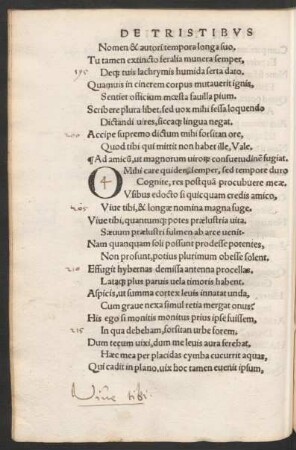 DE TRISTIBVS
Nomen & autori tempora longa suo,
Tu tamen extincto feralia munera semper,
195 Deq; tuis lachrymis humida serta dato.
Quamuis in cinerem corpus mutauerit ignis,
Sentiet officium mœsta fauilla pium.
Scribere plura libet, sed uox mihi fessa loquendo
Dictandi uires, siccaq; lingua negat.
200 Accipe supremo dictum mihi forsitan ore,
Quod tibi qui mittit non habet ille, Vale.
¶ Ad amicũ, ut magnorum uirorũ consuetudinẽ fugiat.
O Mihi care quidẽ semper, sed tempore duro
Cognite, res postquã procubuere meæ.
Vsibus edocto si quicquam credis amico,
205 Viue tibi, & longe nomina magna fuge.
Viue tibi, quantumq; potes prælustria uita.
Sæuum prælustri fulmen ab arce uenit.
Nam quanquam soli possunt prodesse potentes,
Non prosunt, potius plurimum obesse solent.
210 Effugit hybernas demissa antenna procellas,
Lataq; plus paruis uela timoris habent.
Aspicis, ut summa cortex leuis innatat unda,
Cum graue nexa simul retia mergat onus?
His ego si monitis monitus prius ipse fuissem,
215 In qua debebam, forsitan urbe forem.
Dum tecum uixi, dum me leuis aura ferebat,
Hæc mea per placidas cymba cucurrit aquas,
Qui cadit in plano, uix hoc tamen euenit ipsum,
Viue tibi